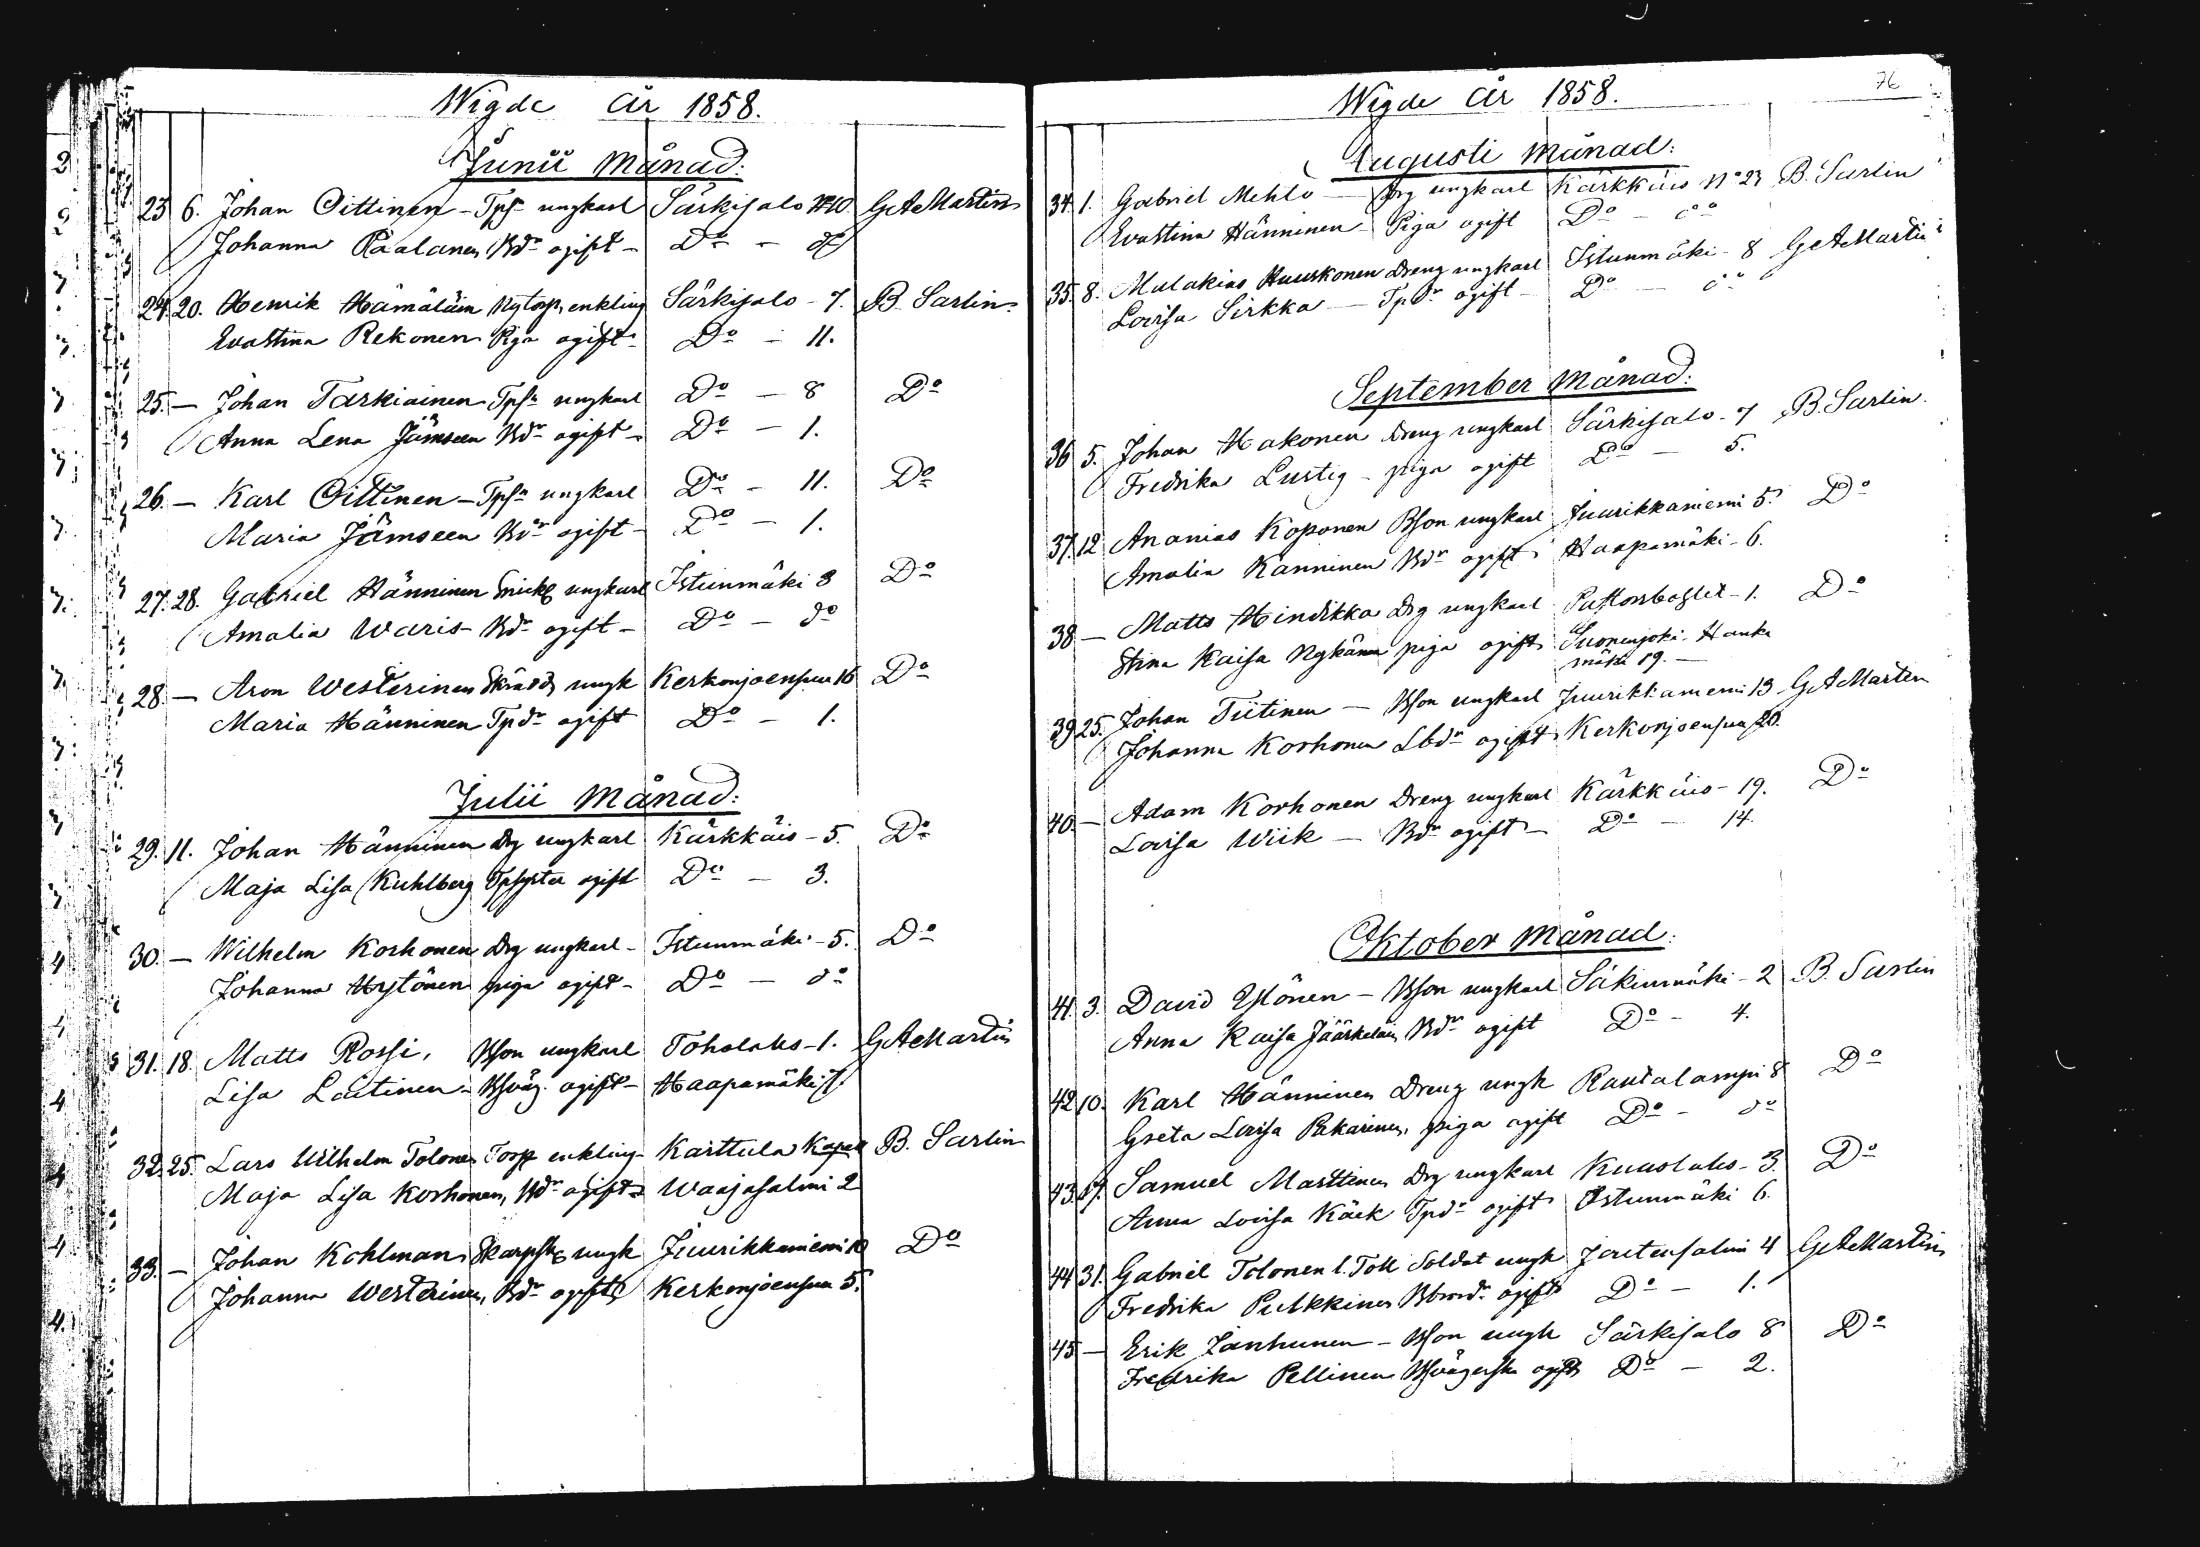 Wigde År 1858.
Junii Månad.
23 6. Johan Oittinen - Tpsn ungkarl Särkisalo No 10. G A Martin
Johanna Paalanen Bdr ogift - Do - do
24. 20. Henrik Hämäläin Nytorp, enkling Särkisalo - 7. B. Sarlin
Evastina Rekonen Pga ogift - Do - 11.
25. - Johan Tarkiainen Tpsn ungkarl Do - 8 Do
Anna Lena Jämseen Bdr ogift - Do - 1.
26. - Karl Oittinen - Tpsn ungkarl Do - 11. Do
Maria Jämseen Bdr ogift - Do - 1.
27. 28. Gabriel Hänninen ungkarl Istunmäki 8 Do
Amalia Waris - Bdr ogift - Do - do
28. - Aron Westerinen ungk Kerkonjoensuu 16 Do
Maria Hänninen Tpdr ogift Do - 1.
Julii Månad:
29. 11. Johan Hänninen Drg ungkarl Kärkkäis - 5. Do
Maja Lisa Kuhlberg Tpsyster ogift Do - 3.
30. - Wilhelm Korhonen Drg ungkarl - Istunmäki - 5. Do
Johanna Hytönen piga ogift - Do - do
31. 18. Matts Rossi, Bson ungkarl Toholaks - 1. G A Martin
Lisa Laitinen - Bsväg. ogift - Haapamäki 7.
32. 25. Lars Wilhelm Tolonen Torp enkling - Karttula Kapell B. Sarlin
Maja Lisa Korhonen, Bdr ogift - Waajasalmi 2
33. - Johan Kohlman, ungk Juurikkaniemi 10 Do
Johanna Westerinen, Bdr ogift Kerkonjoensuu 5.
76
Wigde År 1858.
Augusti Månad:
34. 1. Gabriel Mehlo - Drg ungkarl Kärkkäis No 23 B. Sarlin
Evastina Hänninen - Piga ogift Do - do
35. 8. Malakias Huuskonen Dreng ungkarl Istunmäki - 8 G A Martin
Lovisa Sirkka - Tpdr ogift - Do - do
September Månad:
36 5. Johan Hakonen Dreng ungkarl Särkisalo - 7 B. Sarlin.
Fredrika Lustig - piga ogift Do - 5.
37. 12 Ananias Koponen Bson ungkarl Juurikkaniemi 5. Do
Amalia Kanninen Bdr ogift Haapamäki - 6.
38 - Matts Hindikka Drg ungkarl Pastorsbostet - 1. Do
Stina Kaisa Nykänen piga ogift Suonenjoki. Hanka
mäki 19. -
39 25. Johan Tiitinen - Bson ungkarl Juurikkaniemi 13 - G A Martin
Johanna Korhonen Lbdr ogift Kerkonjoensuu 20.
40. - Adam Korhonen Dreng ungkarl Kärkkäis - 19. Do
Lovisa Wiik - Bdr ogift - Do - 14.
Oktober Månad.
41. 3. David Ylönen - Bson ungkarl Säkinmäki - 2 B. Sarlin
Anna Kaisa Jääskeläin Bdr ogift Do - 4.
42 10. Karl Hänninen Dreng ungk Rautalampi 8 Do
Greta Lovisa Pakarinen, piga ogift Do - do
43. 17. Samuel Marttinen Drg ungkarl Kuuslaks - 3. Do
Anna Lovisa Käck Tpdr ogift Istunmäki 6.
44 31. Gabriel Tolonen l. Toll Soldat ungk Joutensalmi 4 G A Martin
Fredrika Pulkkinen ogift Do - 1.
45 - Erik Janhunen - Bson ungk Särkisalo 8 Do
Fredrika Pellinen Bsvägerska ogift Do - 2.